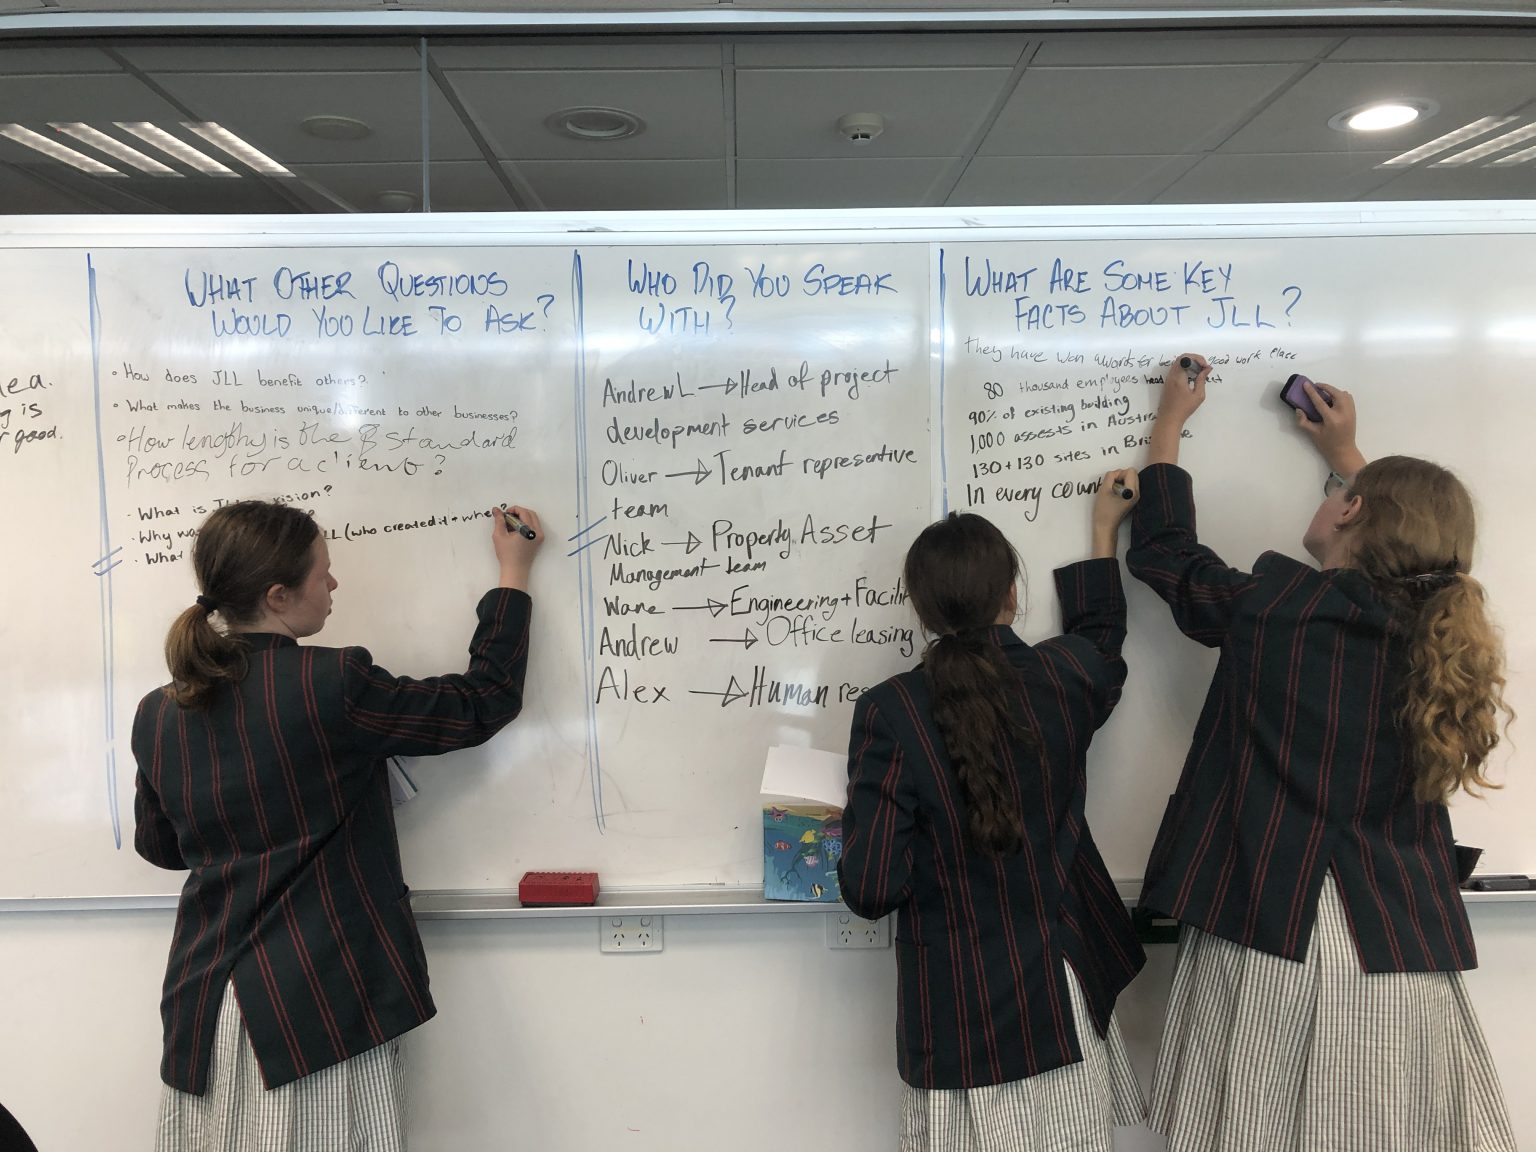 ea.
g is
r good.
WHAT OTHER QUESTIONS
WOULD YOU LIKE TO ASK?
• How does JLL benefit others?
• What makes the business unique/different to other businesses?
• How lengthy is the 8 standard
process for a client?
- What is JLL's vision?
- Why was JLL (who created it + when?
- What
WHO DID YOU SPEAK
WITH?
Andrew L → Head of project
development services
Oliver → Tenant representive
team
Nick → Property Asset
Management team
Wane → Engineering + Facilit
Andrew → Office leasing
Alex → Human res
WHAT ARE SOME KEY
FACTS ABOUT JLL?
they have won awards for good work place
80 thousand employees
90% of existing building
1,000 assests in Austra
130 + 130 sites in Bri
In every count